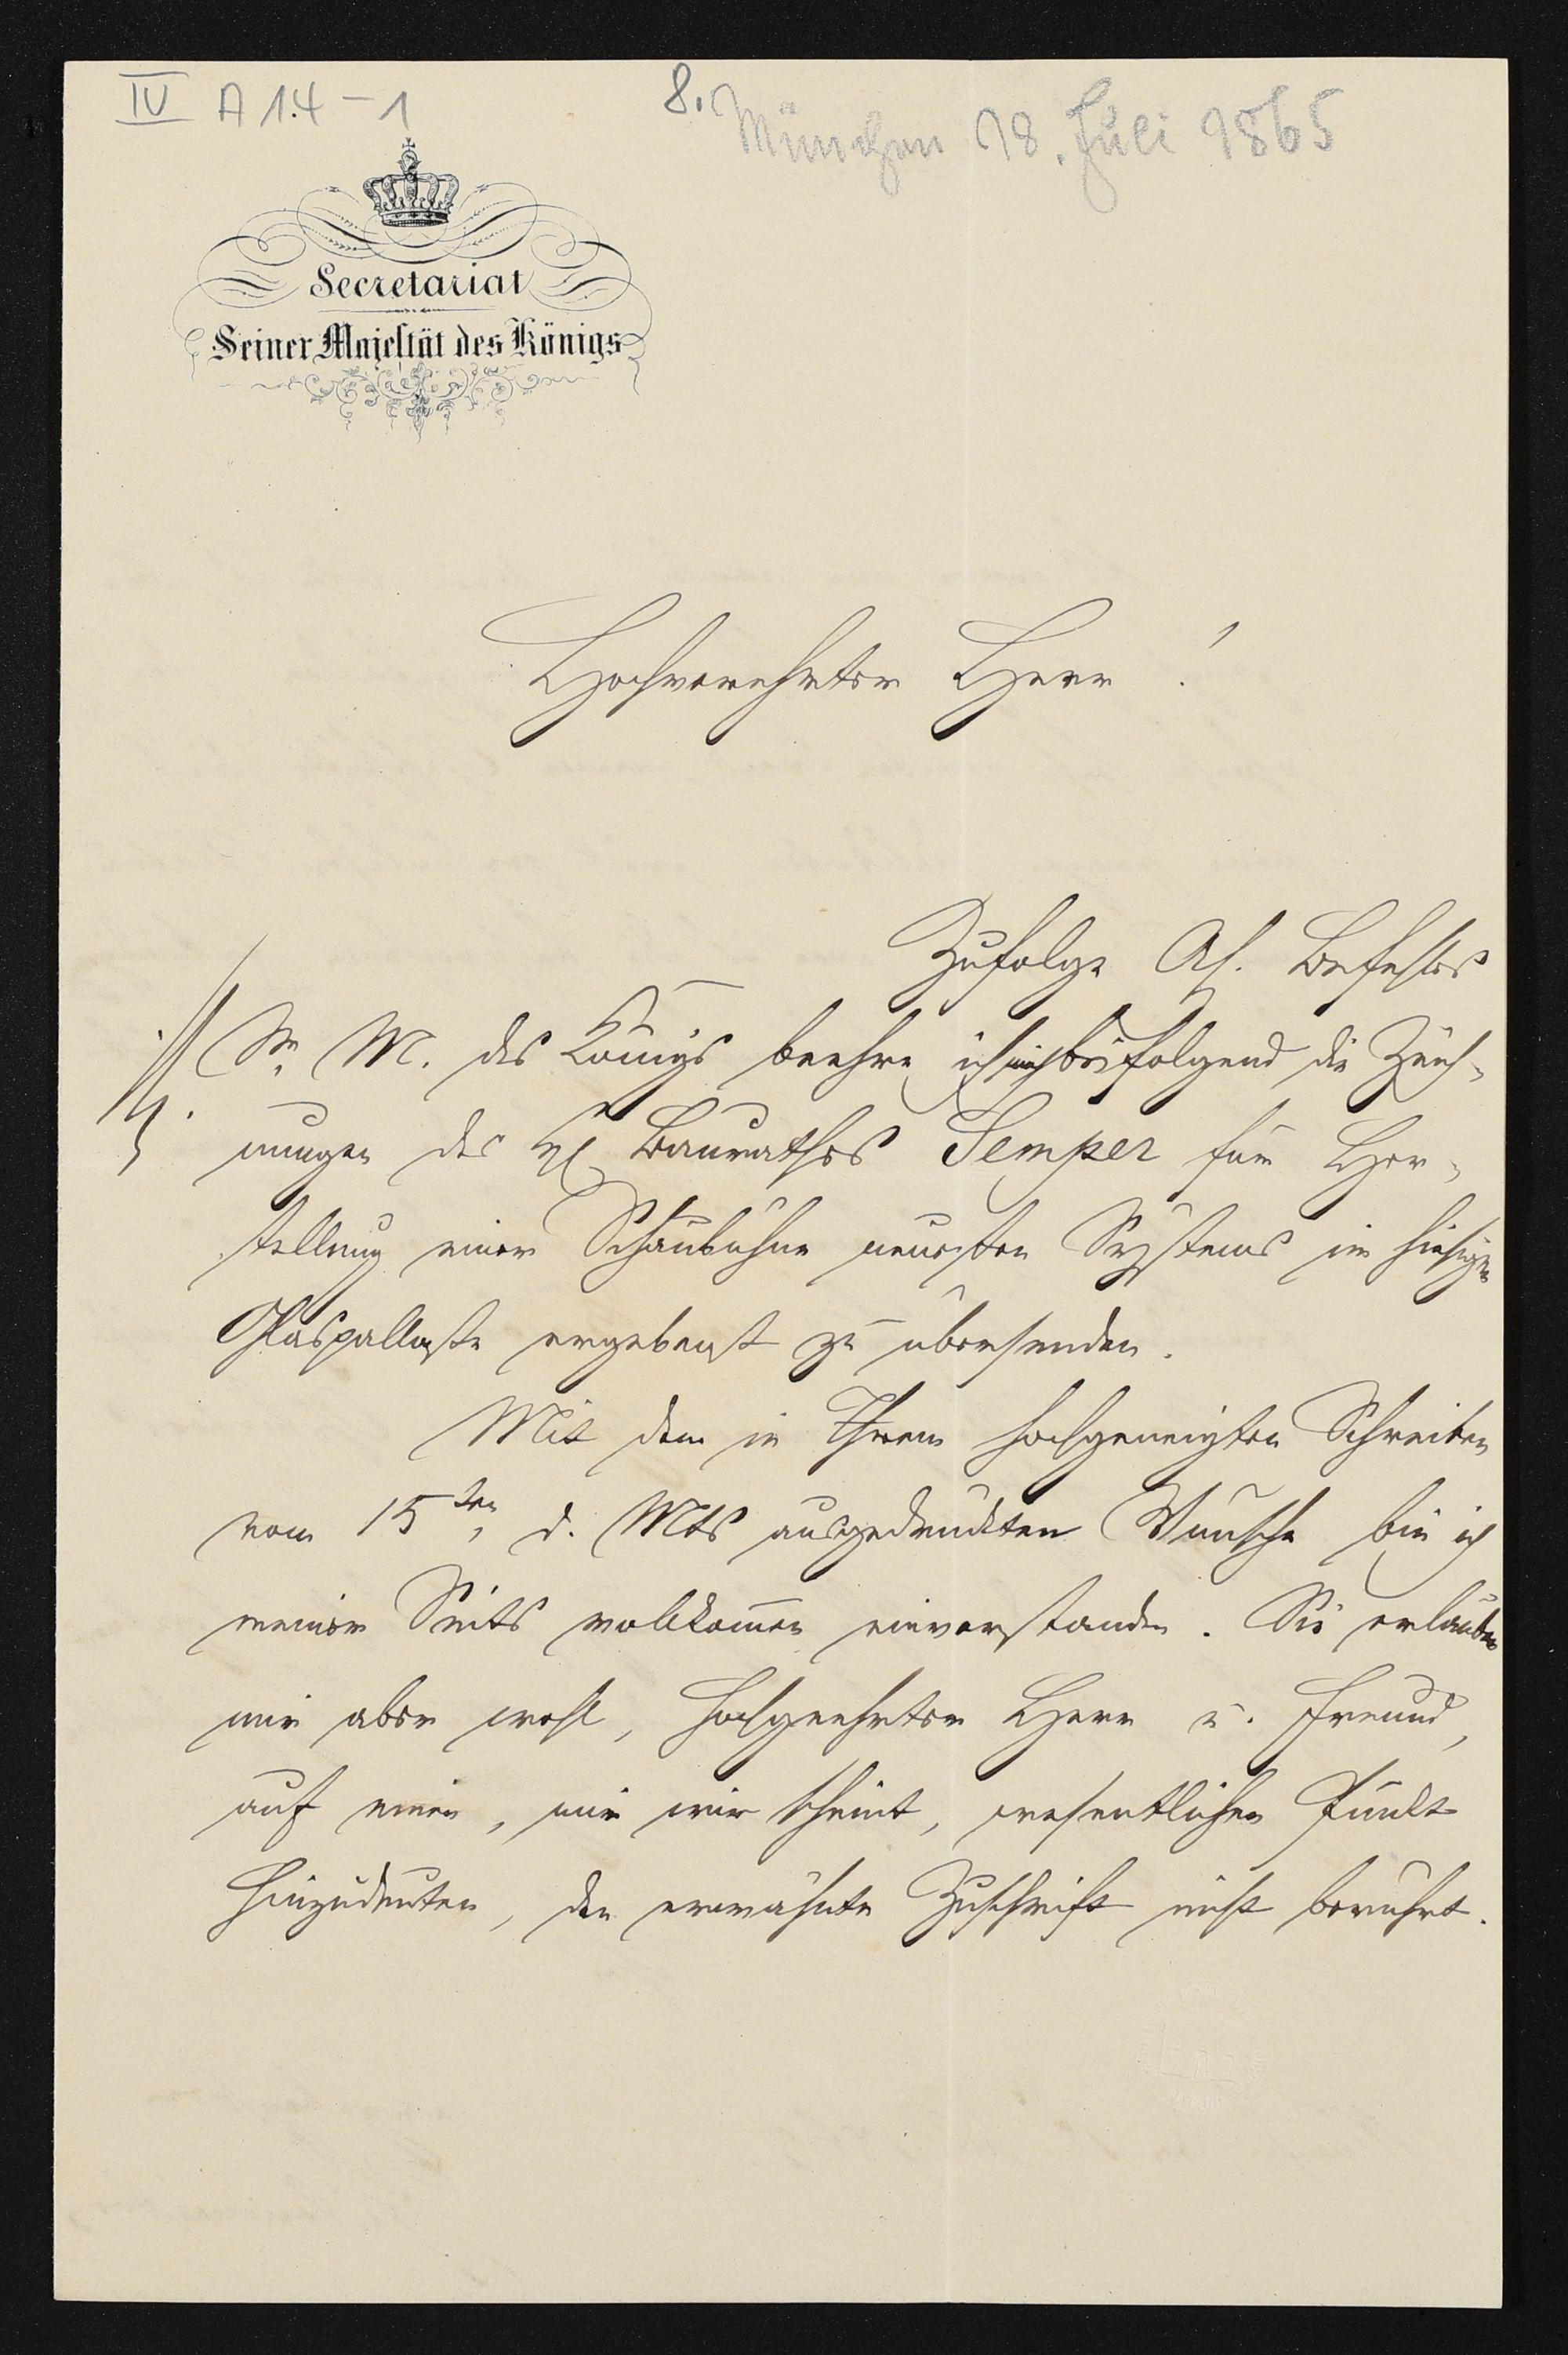 IV A 1.4 - 1
8. München 18. Juli 1865
Secretariat
Seiner Majestät des Königs
Hochverehrter Herr !
Zufolge Ah. Befehls
Sr. M. des Königs beehre ich mich beifolgend die Zeich-
nungen des Baurathes Semper für Her-
stellung einer Schaubühne neuesten Systems im hiesigen
Glaspallaste ergebenst zu übersenden.
Mit dem in Ihrem hochgeneigten Schreiben
vom 15ten d. Mts ausgedrückten Wunsche bin ich
meiner Seits vollkom̅en einverstanden. Sie erlauben
mir aber wohl, hochgeehrter Herr u. Freund,
auf einen, wie mir scheint, wesentlichen Punkt
hinzudeuten, den erwähnte Zuschrift nicht berührt.